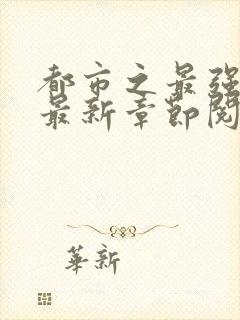 都市之最强
最新章節閱
華新